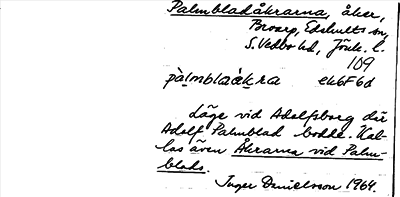 Palmbladåkrarna, åker,
Broarp, Edshults sn,
S. Vedbo hd, Jönk. l.
109
pàlmblaákra ek6F6d
Läge vid Adolfsborg där
Adolf Palmblad bodde. Kal-
las även Åkrarna vid Palm-
blads.
Inger Danielsson 1964.